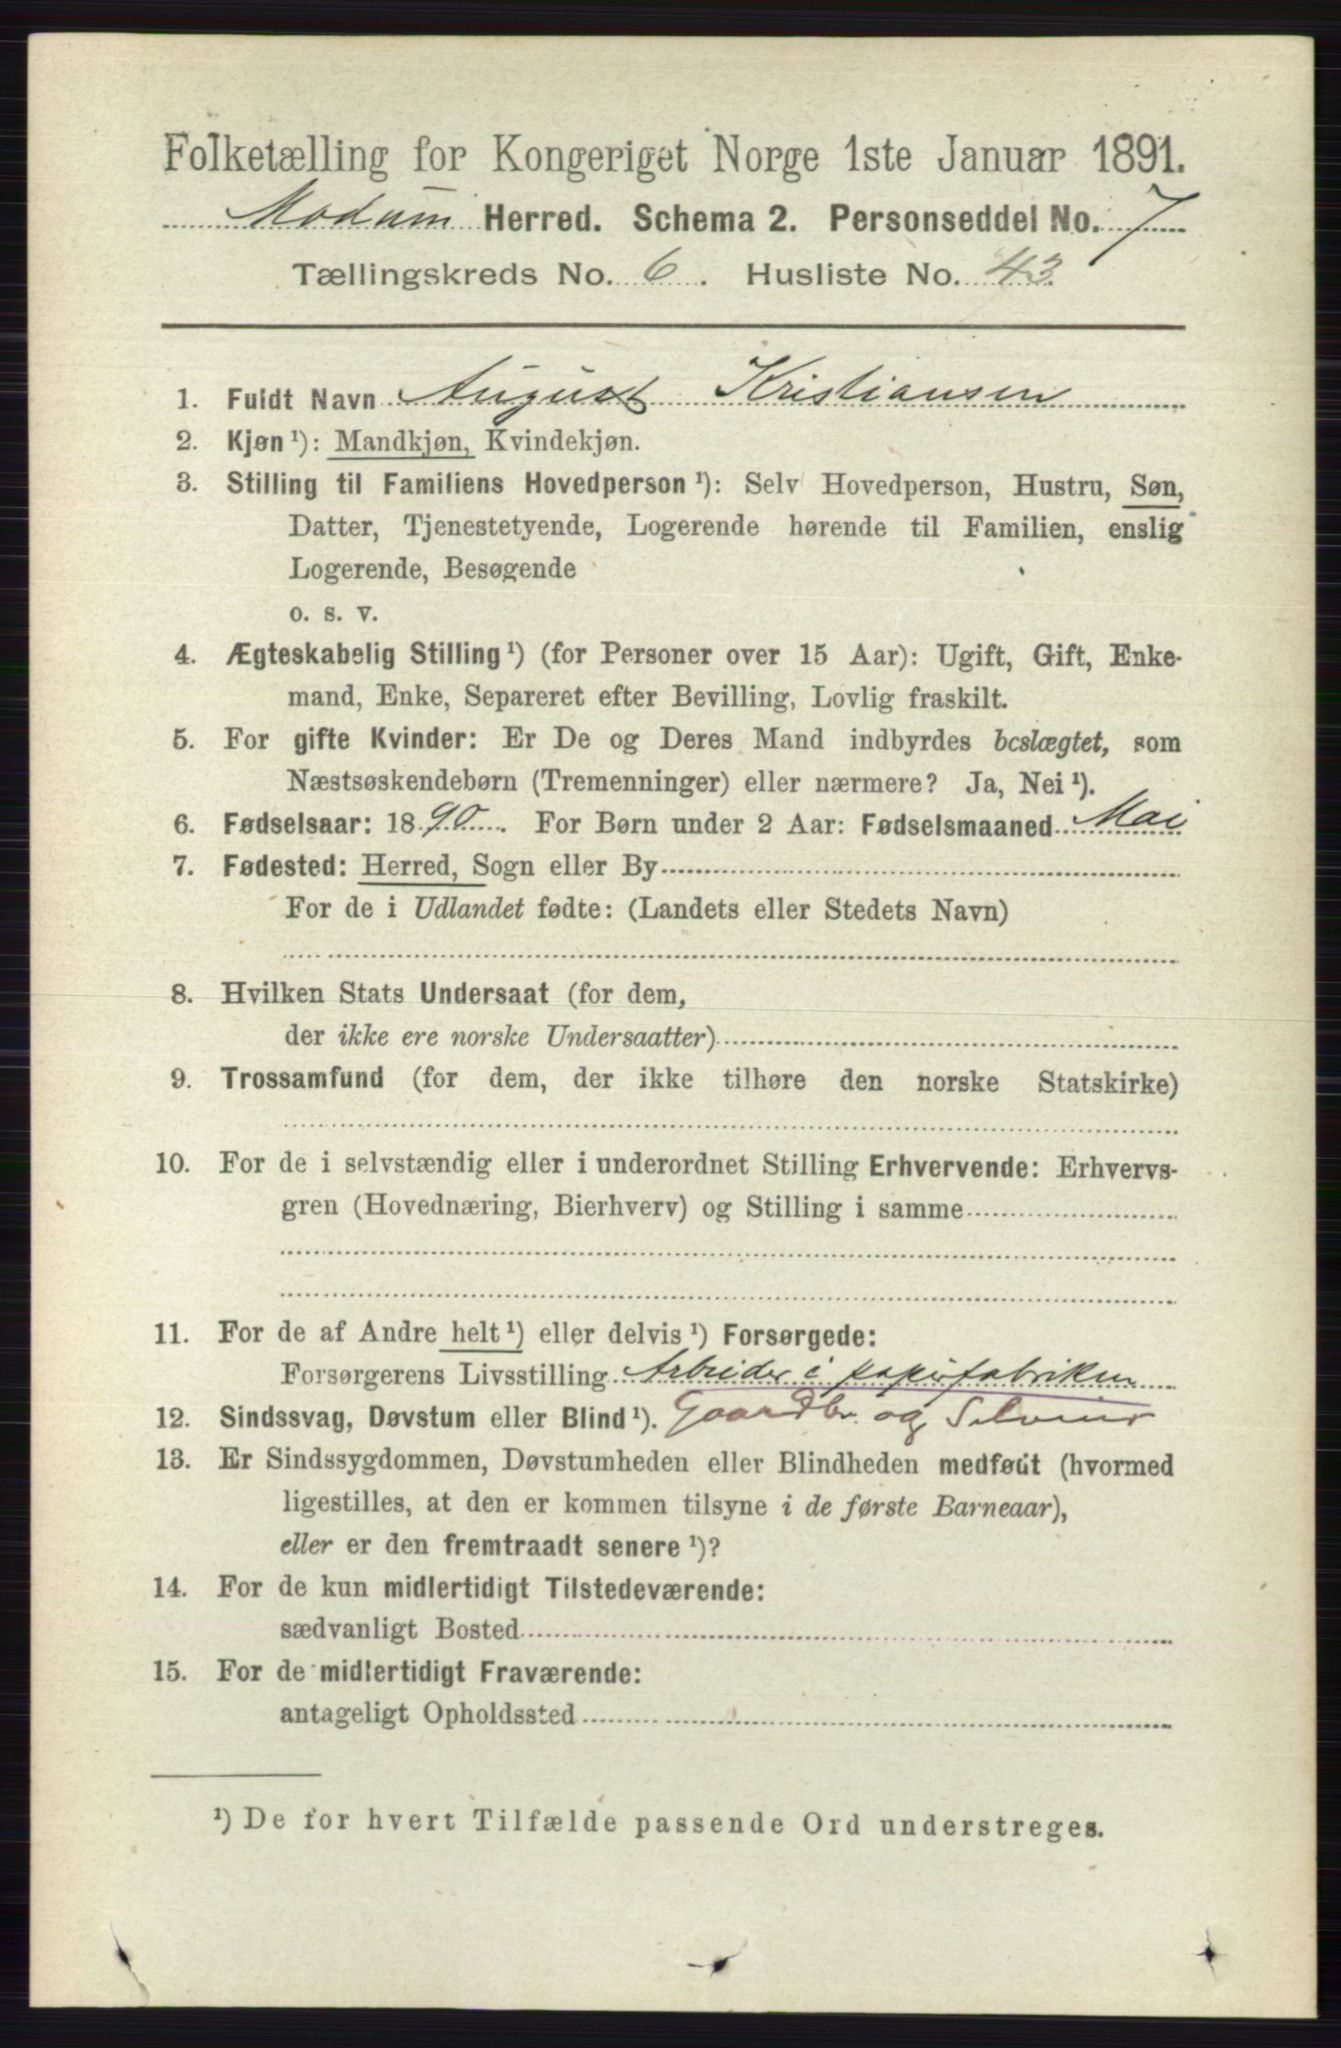 Folketælling for Kongeriget Norge 1ste Januar 1891.
Modum Herred. Schema 2. Personseddel No. 7
Tællingskreds No. 6. Husliste No. 43.
1. Fuldt Navn August Kristiansen
2. Kjøn ¹): Mandkjøn, Kvindekjøn.
3. Stilling til Familiens Hovedperson ¹): Selv Hovedperson, Hustru, Søn,
Datter, Tjenestetyende, Logerende hørende til Familien, enslig
Logerende, Besøgende
o. s. v.
4. Ægteskabelig Stilling ¹) (for Personer over 15 Aar): Ugift, Gift, Enke-
mand, Enke, Separeret efter Bevilling, Lovlig fraskilt.
5. For gifte Kvinder: Er De og Deres Mand indbyrdes beslægtet, som
Næstsøskendebørn (Tremenninger) eller nærmere? Ja, Nei ¹).
6. Fødselsaar: 1890. For Børn under 2 Aar: Fødselsmaaned Mai
7. Fødested: Herred, Sogn eller By
For de i Udlandet fødte: (Landets eller Stedets Navn)
8. Hvilken Stats Undersaat (for dem,
der ikke ere norske Undersaatter)
9. Trossamfund (for dem, der ikke tilhøre den norske Statskirke)
10. For de i selvstændig eller i underordnet Stilling Erhvervende: Erhvervs-
gren (Hovednæring, Bierhverv) og Stilling i samme
11. For de af Andre helt ¹) eller delvis ¹) Forsørgede:
Forsørgerens Livsstilling Arbeider i papirfabriken
12. Sindssvag, Døvstum eller Blind ¹). Gaardbr. og Selveier
13. Er Sindssygdommen, Døvstumheden eller Blindheden medfødt (hvormed
ligestilles, at den er kommen tilsyne i de første Barneaar),
eller er den fremtraadt senere ¹)?
14. For de kun midlertidigt Tilstedeværende:
sædvanligt Bosted
15. For de midlertidigt Fraværende:
antageligt Opholdssted
¹) De for hvert Tilfælde passende Ord understreges.